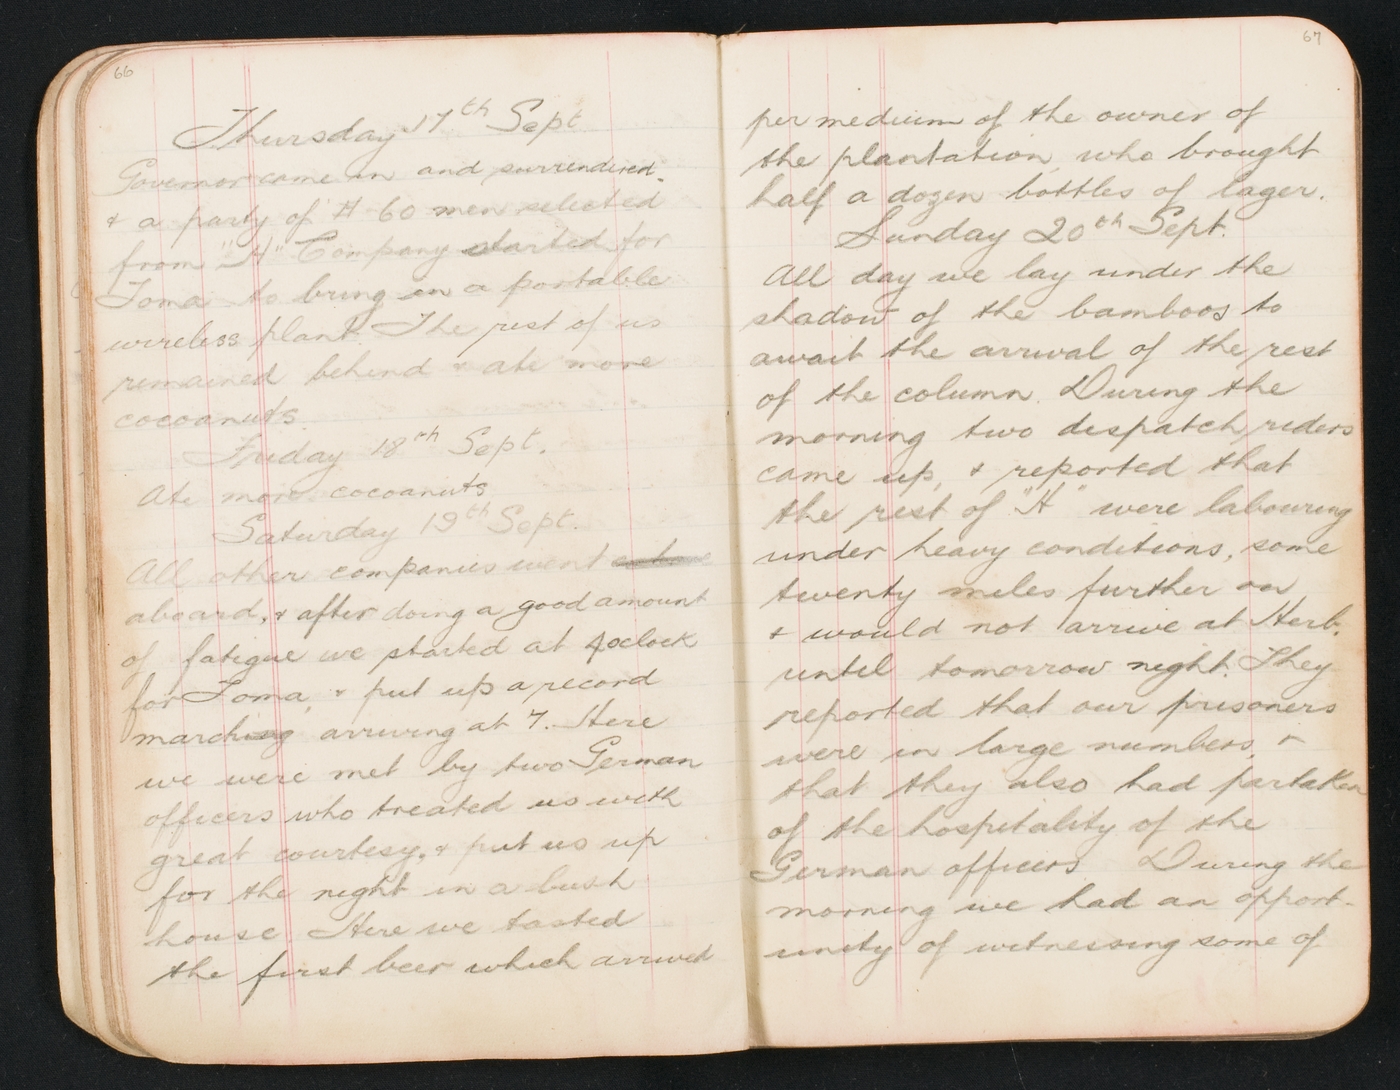 66
Thursday 17th Sept
Governor came in and surrendered.
& a party of 60 men selected
from "H" Company started for
Toma to bring in a portable
wireless plant. The rest of us
remained behind & ate more
cocoanuts.
Friday 18th Sept.
Ate more cocoanuts
Saturday 19th Sept.
All other companies went
aboard, & after doing a good amount
of fatigue we started at 4oclock
for Toma, & put up a record
marching arriving at 7. Here
we were met by two German
officers who treated us with
great courtesy, & put us up
for the night in a bush
house. Here we tasted
the first beer which arrived
67
per medium of the owner of
the plantation, who brought
half a dozen bottles of lager.
Sunday 20th Sept.
All day we lay under the
shadow of the bamboos to
await the arrival of the rest
of the column. During the
morning two despatch riders
came up, & reported that
the rest of "H" were labouring
under heavy conditions, some
twenty miles further on
& would not arrive at Herb.
until tomorrow night. They
reported that our prisoners
were in large numbers, &
that they also had partaken
of the hospitality of the
German officers. During the
morning we had an opport-
unity of witnessing some of